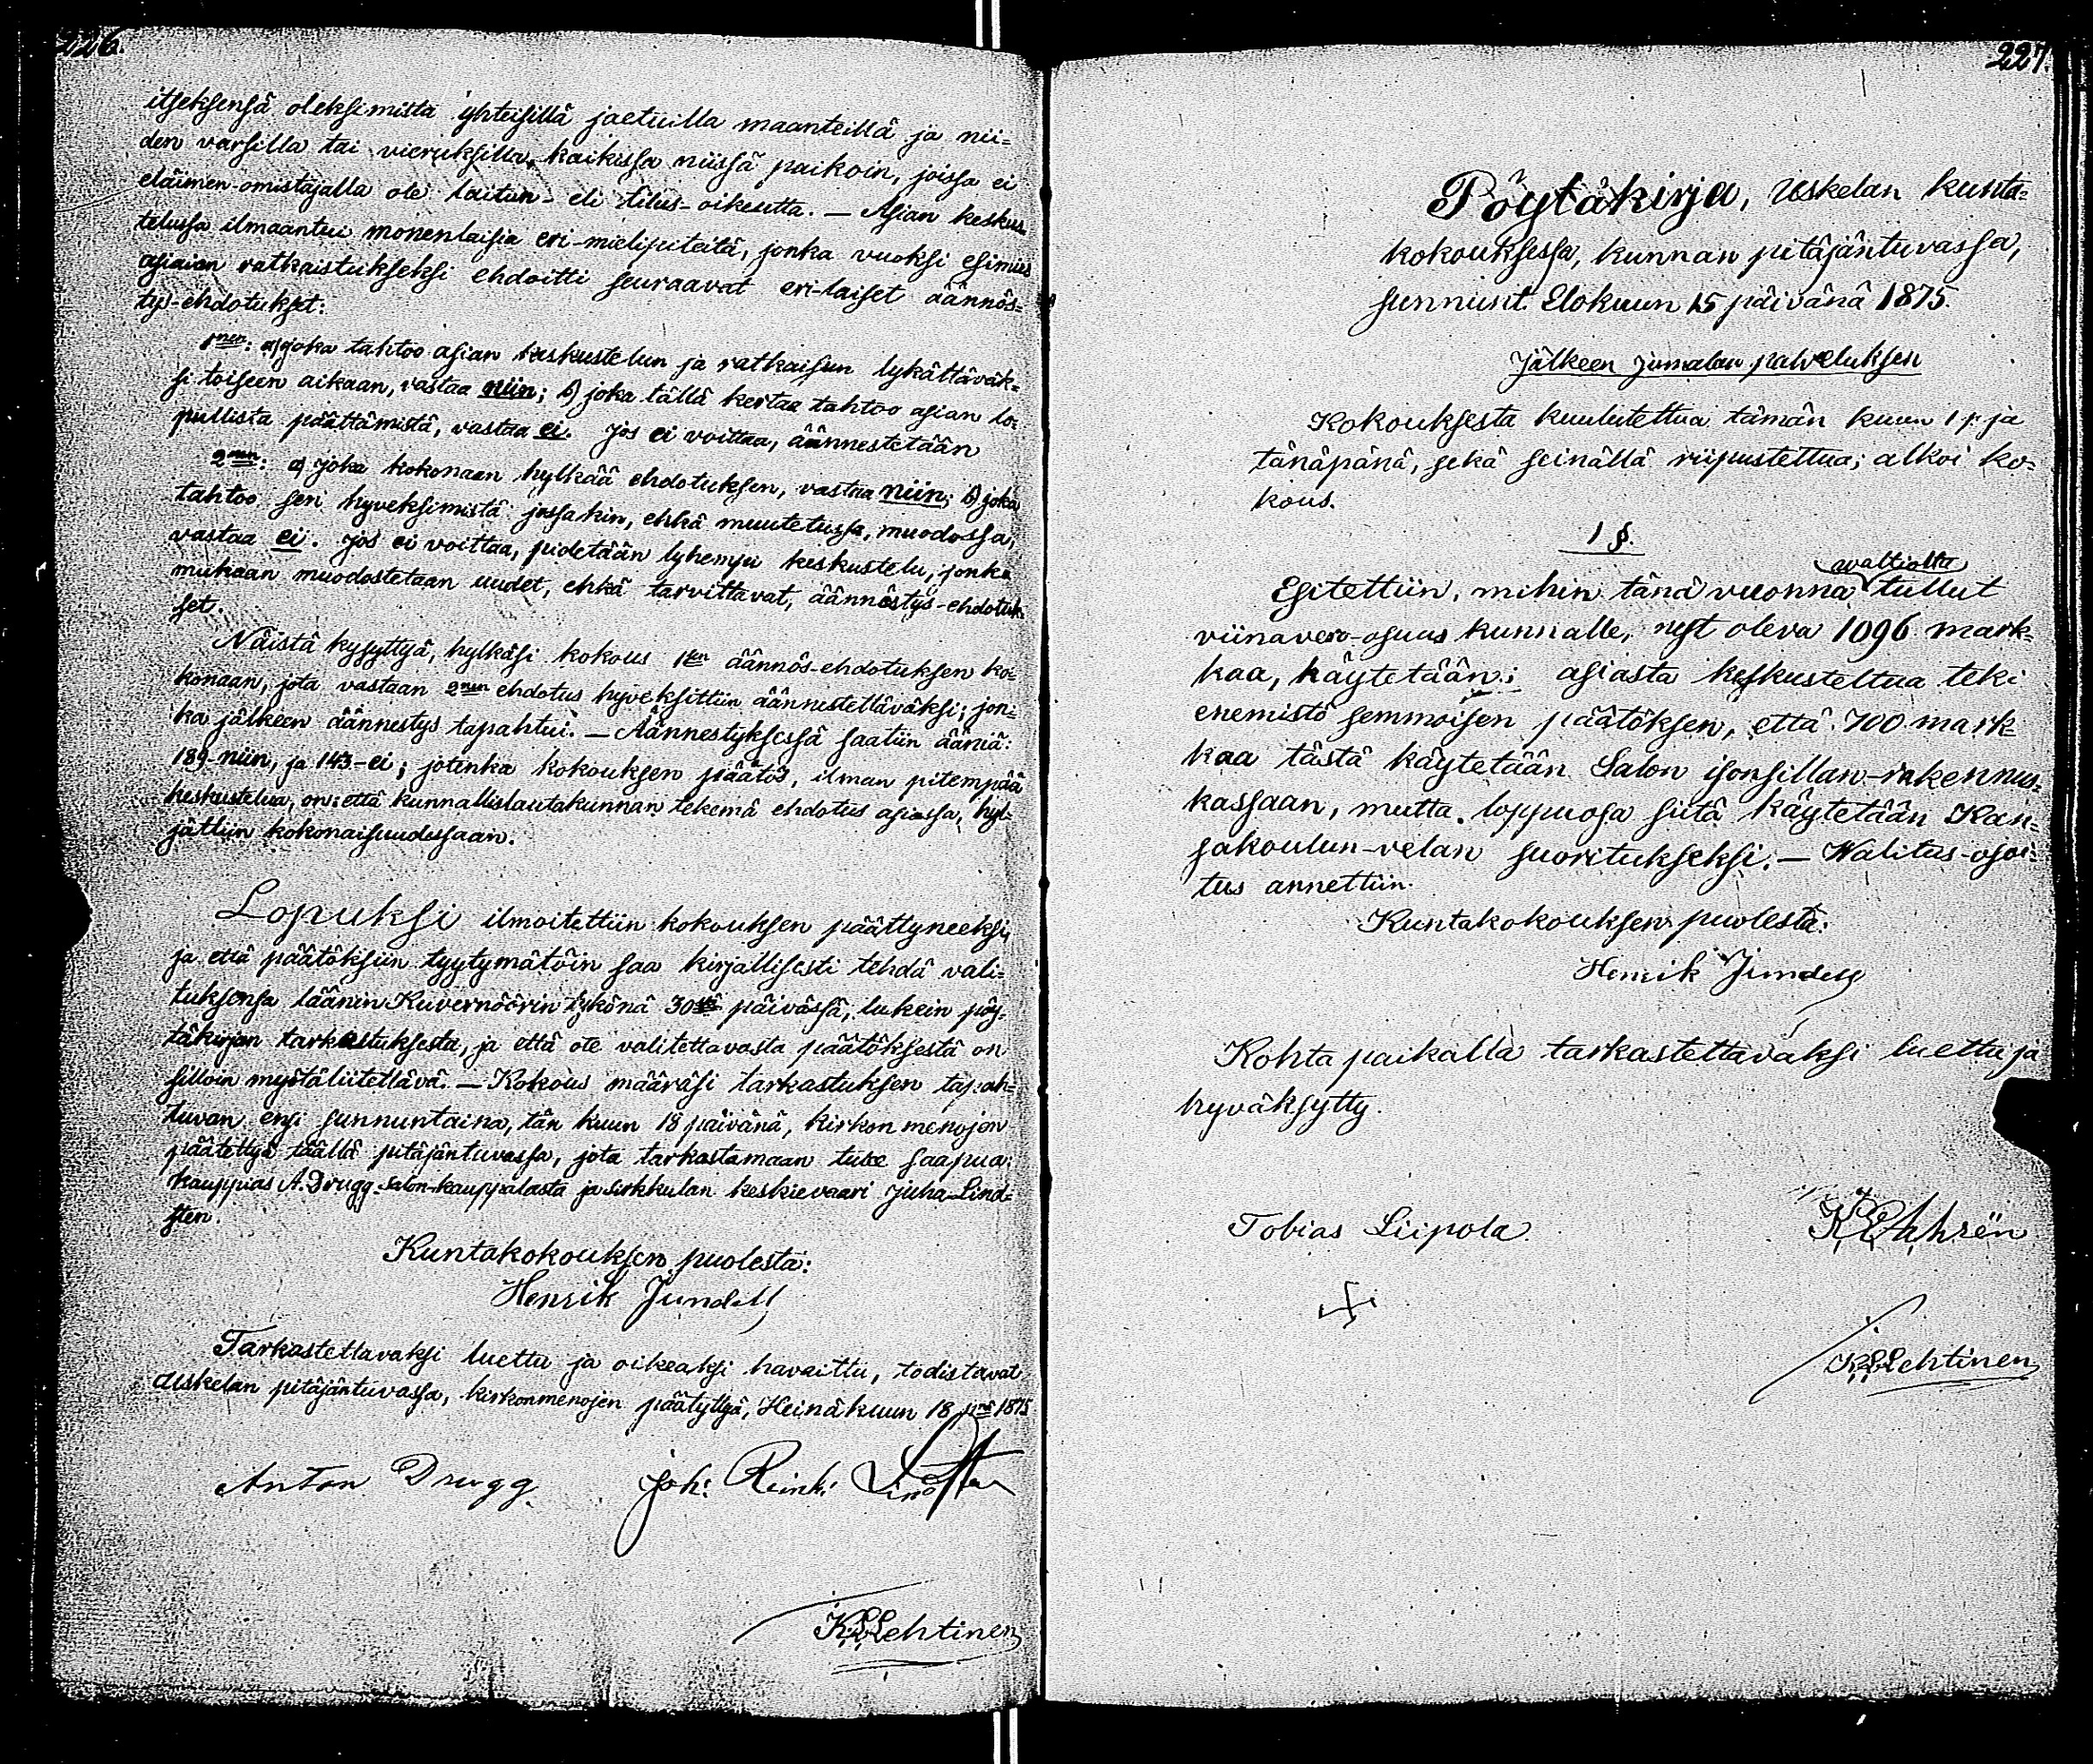 226.
itseksensä oleksimista yhteisillä jaetuilla maanteillä ja nii=
den varsilla tai vieruksilla, kaikissa niissä paikoin, joissa ei
eläimen-omistajalla ole laitun- eli tilus-oikeutta. — Asian keskus=
telussa ilmaantui monenlaisia eri-mielipiteitä, jonka vuoksi esimies
asiaian ratkaistukseksi ehdoitti seuraavat eri-laiset äännös=
tys-ehdotukset:
1nen: a) joka tahtoo asian keskustelun ja ratkaisun lykättäväk=
si toiseen aikaan, vastaa niin; b) joka tällä kertaa tahtoo asian lo=
pullista päättämistä, vastaa ei. Jos ei voittaa, äännestetään
2nen: a) joka kokonaan hylkää ehdotuksen, vastaa niin; b) joka
tahtoo sen hyveksimistä jossakin, ehkä muutetussa, muodossa,
vastaa ei. Jos ei voittaa, pidetään lyhempi keskustelu, jonka
mukaan muodostetaan uudet, ehkä tarvittavat, äännöstys-ehdotuk
set.
Näistä kysyttyä, hylkäsi kokous 1sen äännös-ehdotuksen ko=
konaan, jota vastaan 2nen ehdotus hyveksittiin äännestettäväksi; jon=
ka jälkeen äännestys tapahtui. — Äännestyksessä saatiin ääniä:
189-niin, ja 143-ei; jotenka kokouksen päätös, ilman pitempää
keskustelua, on: että kunnallislautakunnan tekemä ehdotus asiassa, hyl=
jättiin kokonaisuudessaan.
Lopuksi ilmoitettiin kokouksen päättyneeksi,
ja että päätöksiin tyytymätöin saa kirjallisesti tehdä vali=
tuksensa läänin Kuvernöörin tykönä 30ssä päivässä, lukein pöy=
täkirjan tarkastuksesta, ja että ote valitettavasta päätöksestä on
silloin myötäliitettävä. — Kokous määräsi tarkastuksen tapah=
tuvan ensi sunnuntaina, tän kuun 18 päivänä, kirkon menojen
päätettyä täällä pitäjäntuvassa, jota tarkastamaan tulee saapua:
kauppias A. Drugg Salon-kauppalasta ja Sirkkulan keskievaari Juha Lind=
sten.
Kuntakokouksen puolesta:
Henrik Jundell
Tarkastettavaksi luettu ja oikeaksi havaittu, todistavat
Uskelan pitäjäntuvassa, kirkonmenojen päätyttyä, Heinäkuun 18 pnä 1875
Anton Drugg. Joh: Reinh: Lindsten
K.E.Lehtinen
227.
Pöytäkirja, Uskelan kunta=
kokouksessa, kunnan pitäjäntuvassa,
sunnunt. Elokuun 15 päivänä 1875.
Jälkeen Jumalan palveluksen
Kokouksesta kuulutettua tämän kuun 1 p. ja
tänäpänä, sekä seinällä riipustettua; alkoi ko=
kous.
1 §.
valtiolta
Esitettiin, mihin tänä vuonna tullut
viinavero-osuus kunnalle, nyt oleva 1096 mark=
kaa, käytetään: asiasta keskusteltua teki
enemistö semmoisen päätöksen, että 700 mark=
kaa tästä käytetään Salon isonsillan-rakennus=
kassaan, mutta loppuosa siitä käytetään Kan=
sakoulun-velan suoritukseksi. — Walitus-osoi=
tus annettiin.
Kuntakokouksen puolesta:
Henrik Jundell
Kohta paikalla tarkastettavaksi luettu ja
hyväksytty.
Tobias Liipola K.E.Ahrén
K.E.Lehtinen